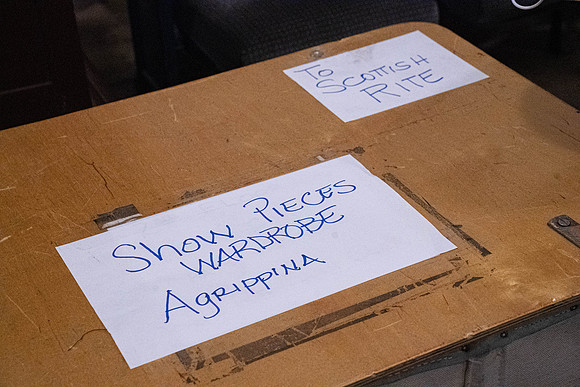 To
Scottish
Rite
Show Pieces
Wardrobe
Agrippina